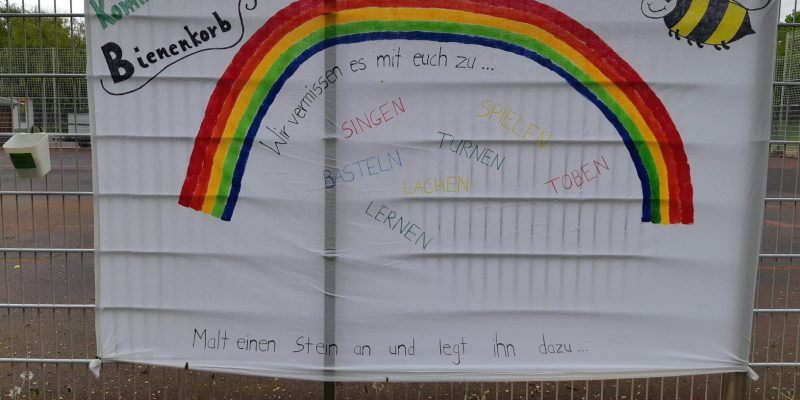 Bienenkorb
Wir vermissen es mit euch zu...
SINGEN
SPIELEN
TURNEN
BASTELN
LACHEN
TOBEN
LERNEN
Malt einen Stein an und legt ihn dazu...